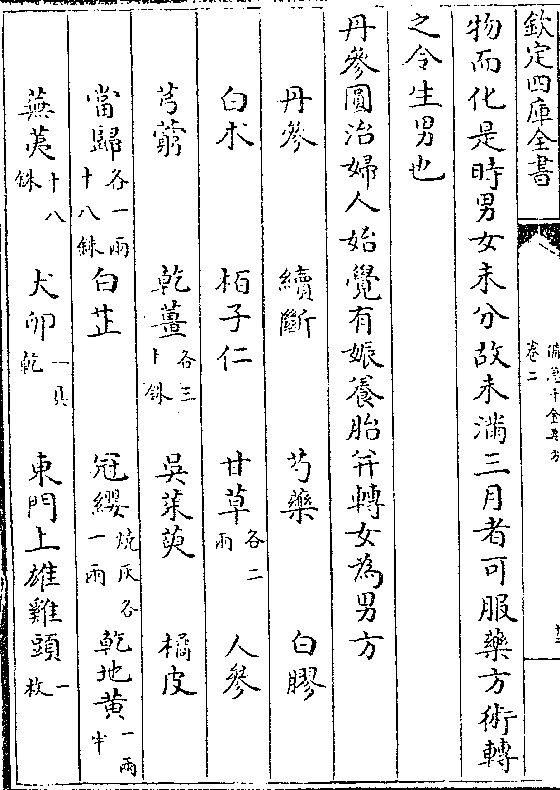 欽定四庫全書
卷二
物而化是時男女未分故未滿三月者可服藥方術轉
之令生男也
丹參圓治婦人始覺有娠養胎并轉女為男方
丹參 續斷 芍藥 白膠
白朮 柏子仁 甘草各二兩 人參
芎藭 乾薑各三十銖 吳茱萸 橘皮
當歸各一兩十八銖 白芷 冠纓燒灰各一兩 乾地黃一兩半
蕪荑十八銖 犬卵一具乾 東門上雄雞頭一枚